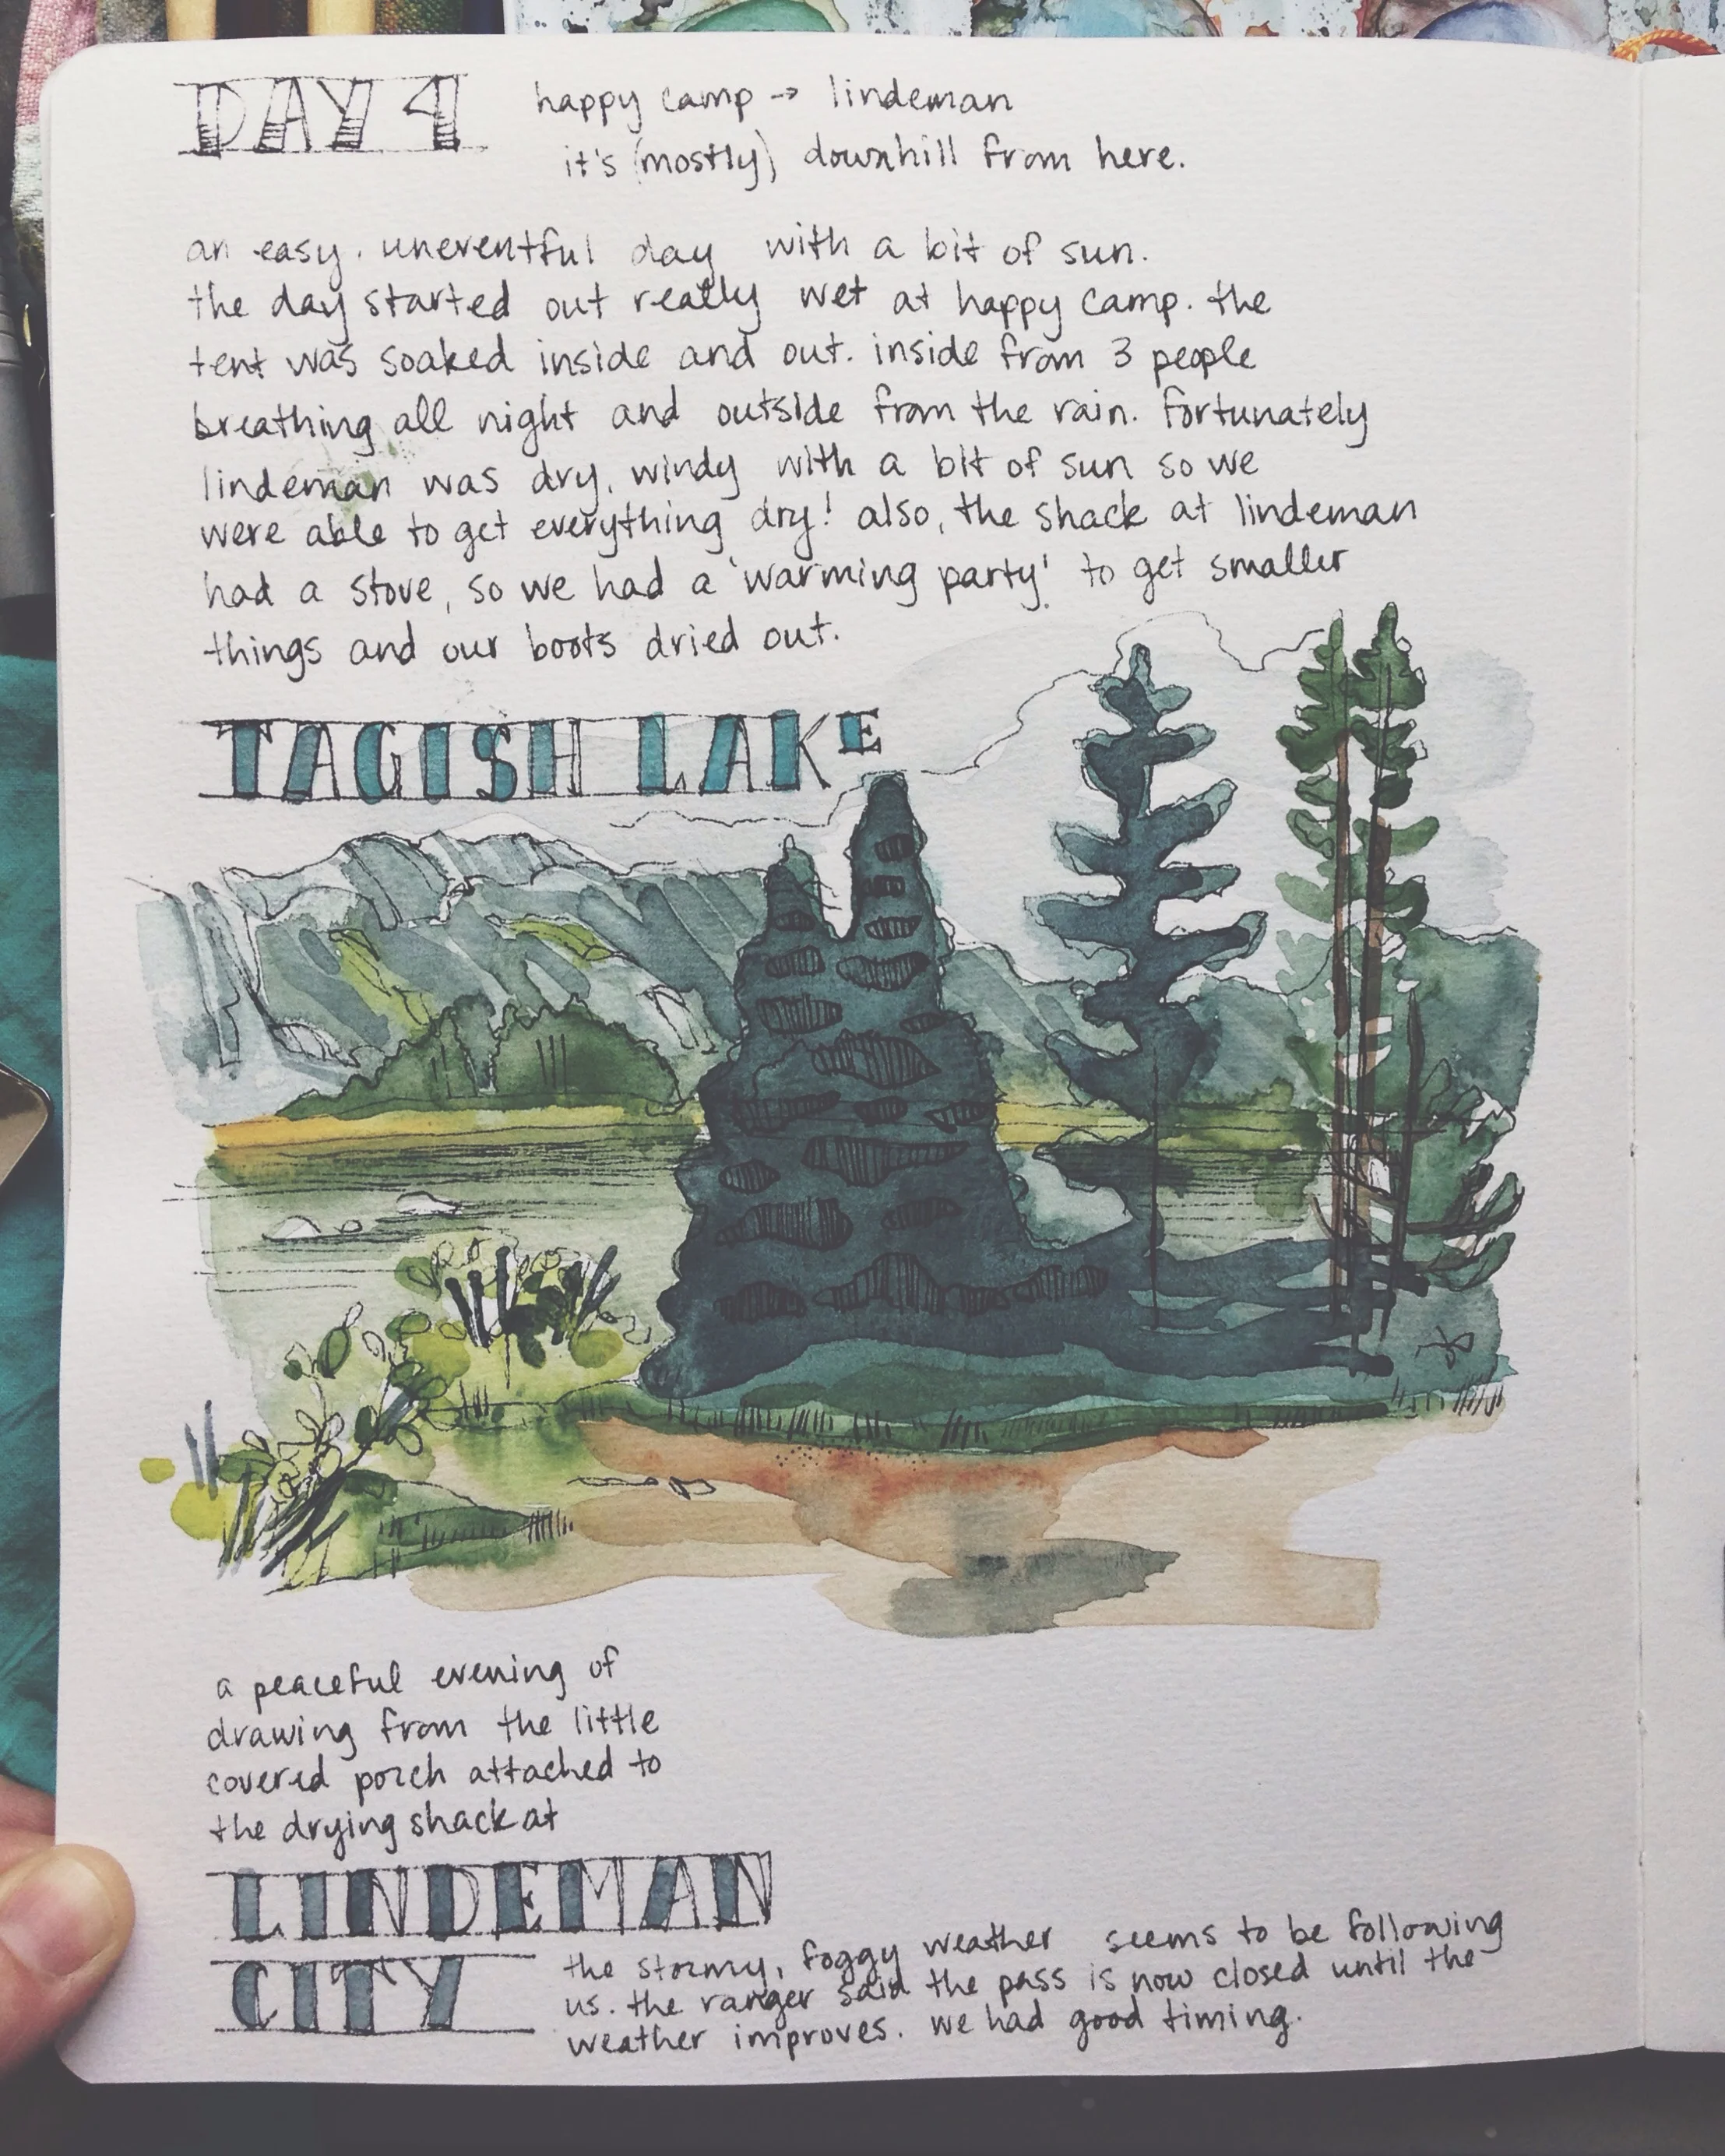 DAY 4
happy camp → lindeman
it's (mostly) downhill from here.
an easy. uneventful day with a bit of sun.
the day started out really wet at happy camp. the
tent was soaked inside and out. inside from 3 people
breathing all night and outside from the rain. fortunately
lindeman was dry, windy with a bit of sun so we
were able to get everything dry! also, the shack at lindeman
had a stove, so we had a 'warming party' to get smaller
things and our boots dried out.
TAGISH LAKE
a peaceful evening of
drawing from the little
covered porch attached to
the drying shack at
LINDEMAN
CITY
the stormy, foggy weather seems to be following
us. the ranger said the pass is now closed until the
weather improves. we had good timing.